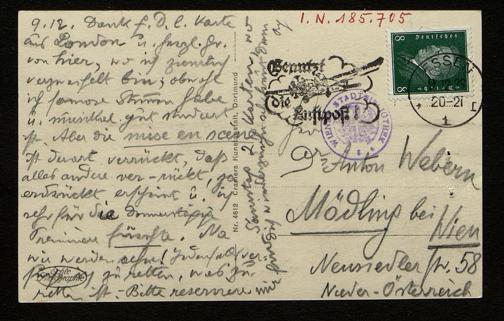 I. N. 185.705
9.12. Dank f. D. l. Karte
aus London u. herzl. Gr.
von hier, wo ich ziemlich
verzweifelt bin; obwohl
ich famose Stimmen habe
u. musikal. gut studiert
ist. Aber die mise en scène
ist derart verrückt, daß
alles andere ver-rückt,
erscheint u. ich
sehr für die Donnerstägige
Premiere fürchte. Na
wir werden
zu retten, was zu
retten ist. Bitte reserviere
mir für
Sonntag 2 Karten wo
Nr. 4612 Cramers Kunstanstalt, Dortmund
Benutzt
die
Luftpost!
Deutsches Reich
8 8
ESSEN
20-21
1
WIENER STADTBIBLIOTHEK
Dr. Anton Webern
Mödling bei Wien
Neusiedlerstr. 58
Nieder-Österreich
Echte
Photographie